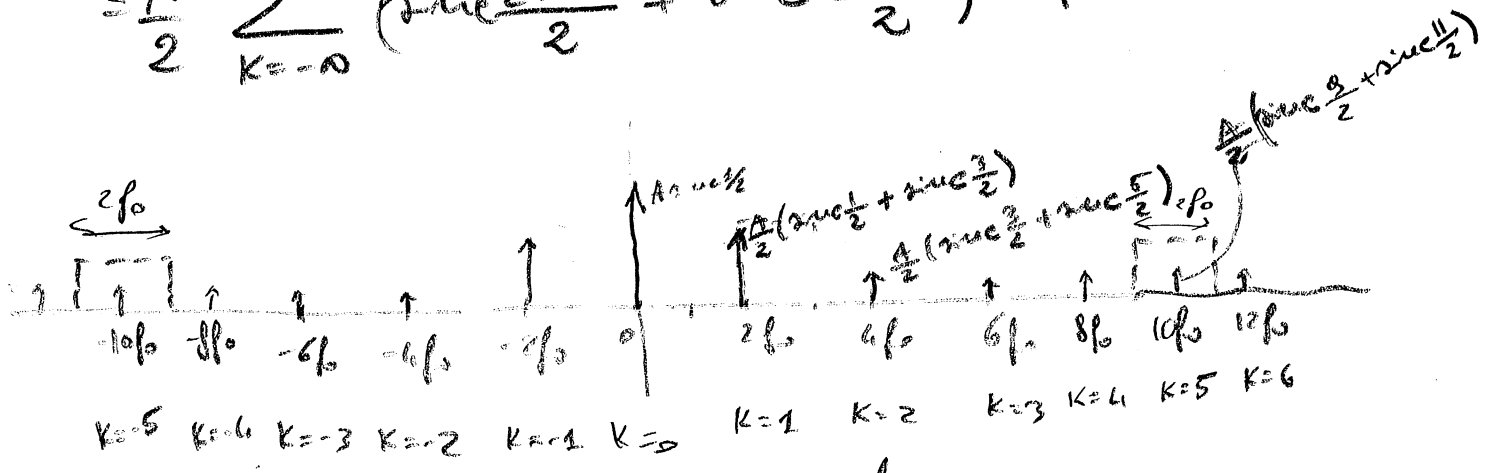 2 K=-∞ 2 2
A/2 (sinc 9/2 + sinc 11/2)
2f₀ A sinc 1/2 A/2 (sinc 1/2 + sinc 3/2) A/2 (sinc 3/2 + sinc 5/2) 2f₀
-10f₀ -8f₀ -6f₀ -4f₀ -2f₀ 0 2f₀ 4f₀ 6f₀ 8f₀ 10f₀ 12f₀
K=-5 K=-4 K=-3 K=-2 K=-1 K=0 K=1 K=2 K=3 K=4 K=5 K=6